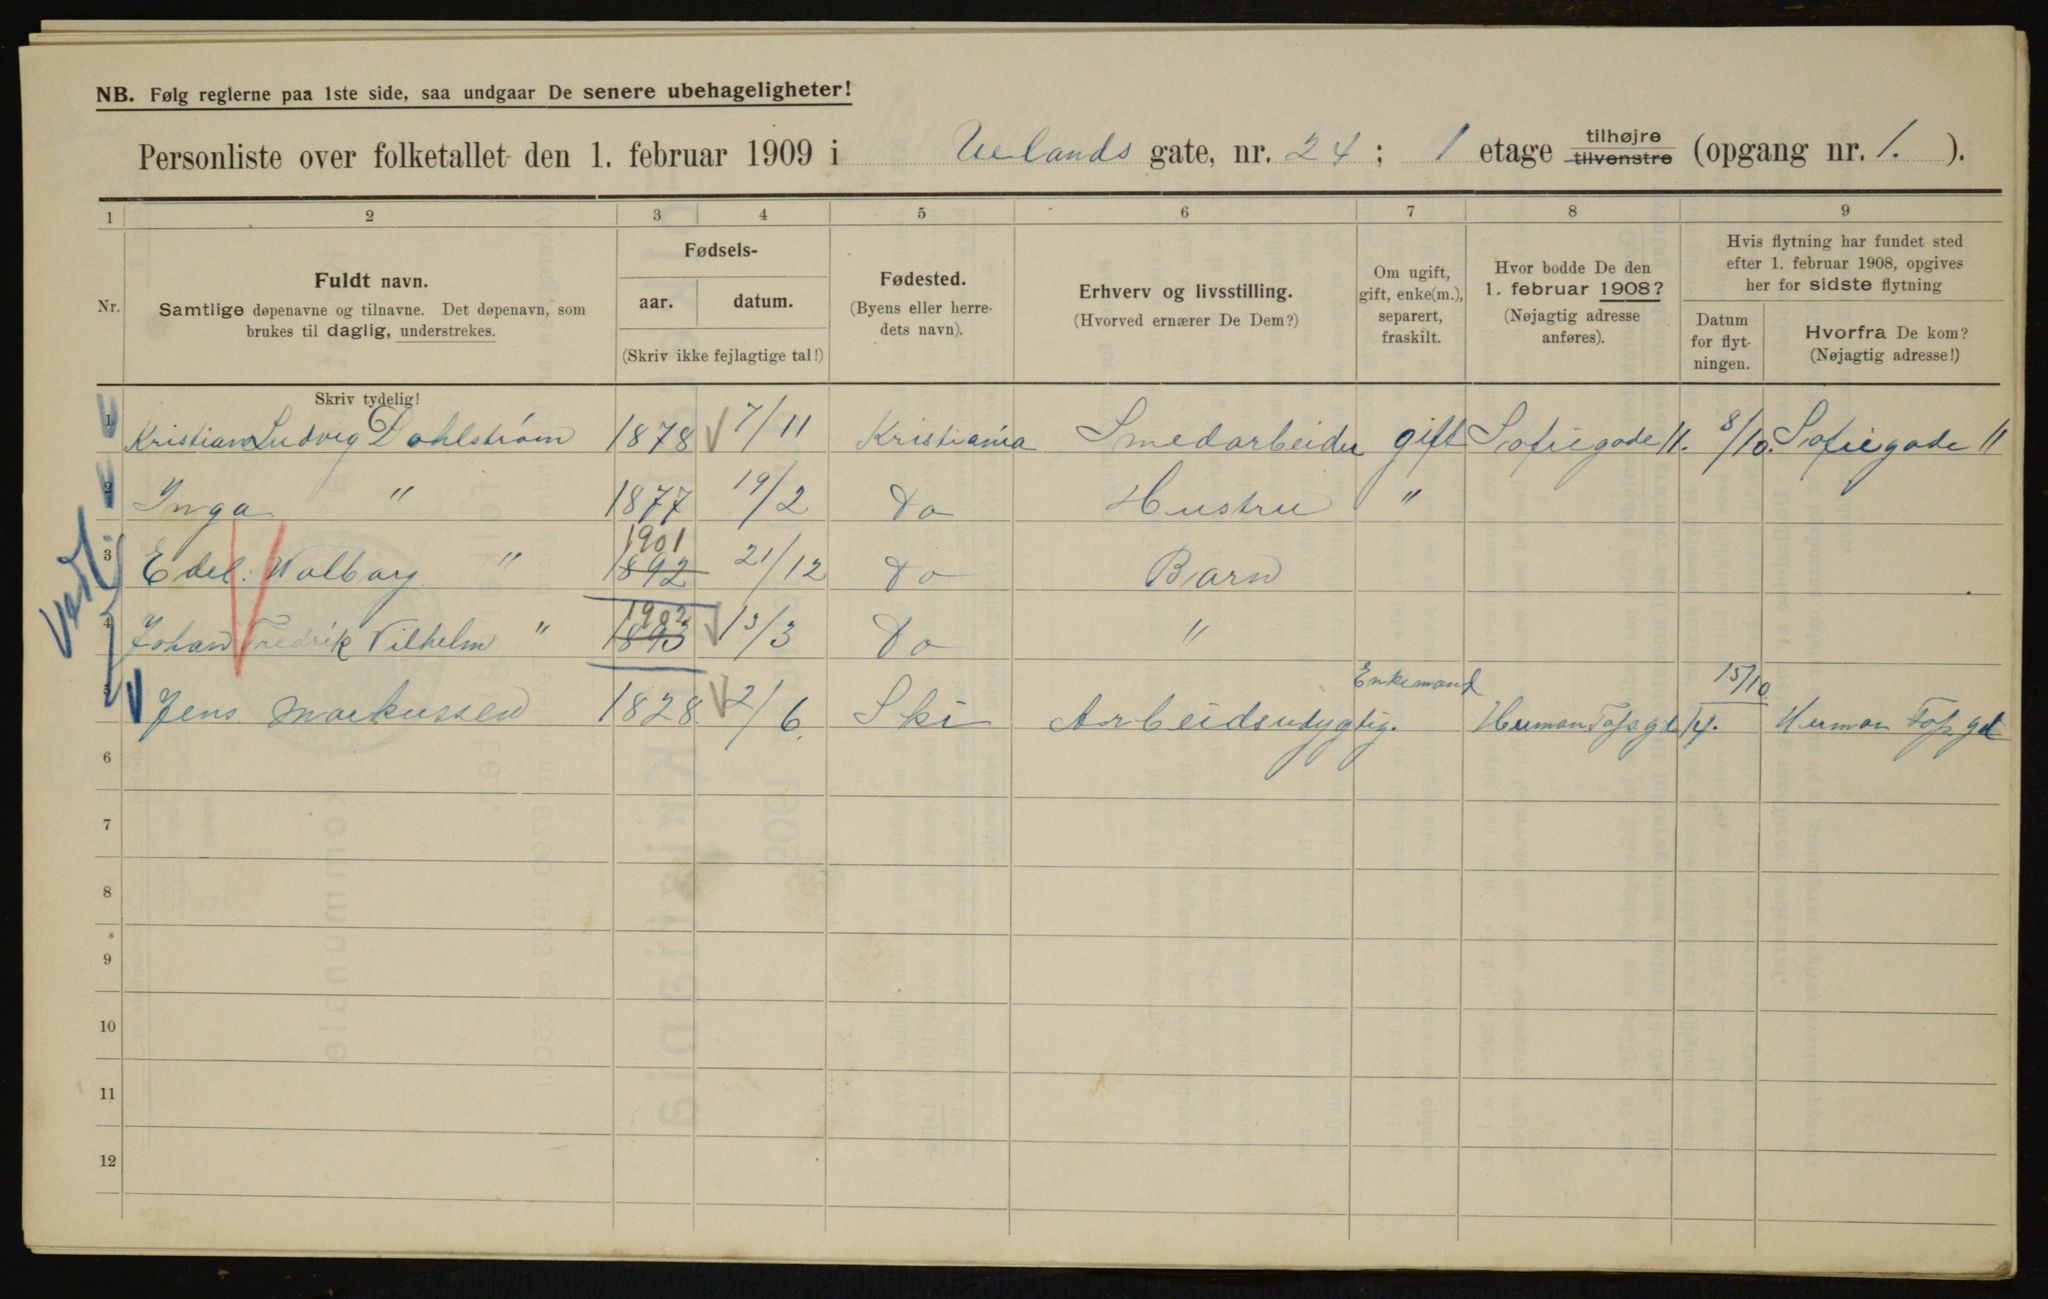 NB. Følg reglerne paa 1ste side, saa undgaar De senere ubehageligheter!
Personliste over folketallet den 1. februar 1909 i Uelands gate, nr. 24; 1 etage tilhøjre tilvenstre (opgang nr. 1. ).
1 2 3 4 5 6 7 8 9
Nr.
Fuldt navn.
Samtlige døpenavne og tilnavne. Det døpenavn, som
brukes til daglig, understrekes.
Fødsels-
aar. datum.
(Skriv ikke fejlagtige tal!)
Fødested.
(Byens eller herre-
dets navn).
Erhverv og livsstilling.
(Hvorved ernærer De Dem?)
Om ugift,
gift, enke(m.),
separert,
fraskilt.
Hvor bodde De den
1. februar 1908?
(Nøjagtig adresse
anføres).
Hvis flytning har fundet sted
efter 1. februar 1908, opgives
her for sidste flytning
Datum
for flyt-
ningen.
Hvorfra De kom?
(Nøjagtig adresse!)
Skriv tydelig!
1 Kristian Ludvig Dahlstrøm 1878 7/11 Kristiania Smedarbeider gift Sofiegade 11. 8/10. Sofiegade 11
2 Inga " 1877 19/2 Do Hustru "
1901
3 Edel Walborg " 1892 21/12 Do Barn
1902
4 Johan Fredrik Vilhelm " 1893 13/3 Do "
Enkemand 15/10.
5 Jens Markussen 1828 2/6. Ski Arbeidsudygtig. Herman Fossgd 14. Herman Foss gd
6
7
8
9
10
11
12